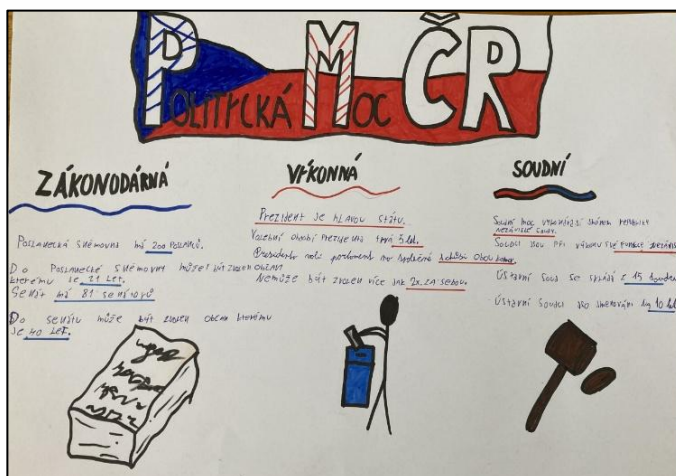 POLITICKÁ MOC ČR
ZÁKONODÁRNÁ
Poslanecká sněmovna má 200 poslanců.
Do Poslanecké sněmovny může být zvolen občan
kterému je 21 let.
Senát má 81 senátorů
Do senátu může být zvolen občan kterému
je 40 let.
VÝKONNÁ
Prezident je hlavou státu.
Volební období prezidenta trvá 5 let.
parlament na společné schůzi obou komor.
Nemůže být zvolen více jak 2x za sebou.
SOUDNÍ
Soudní moc vykonávají jménem republiky
nezávislé soudy.
Soudci jsou při výkonu své funkce nezávislí
Ústavní soud se skládá z 15 soudců
Ústavní soudci jsou jmenováni na 10 let